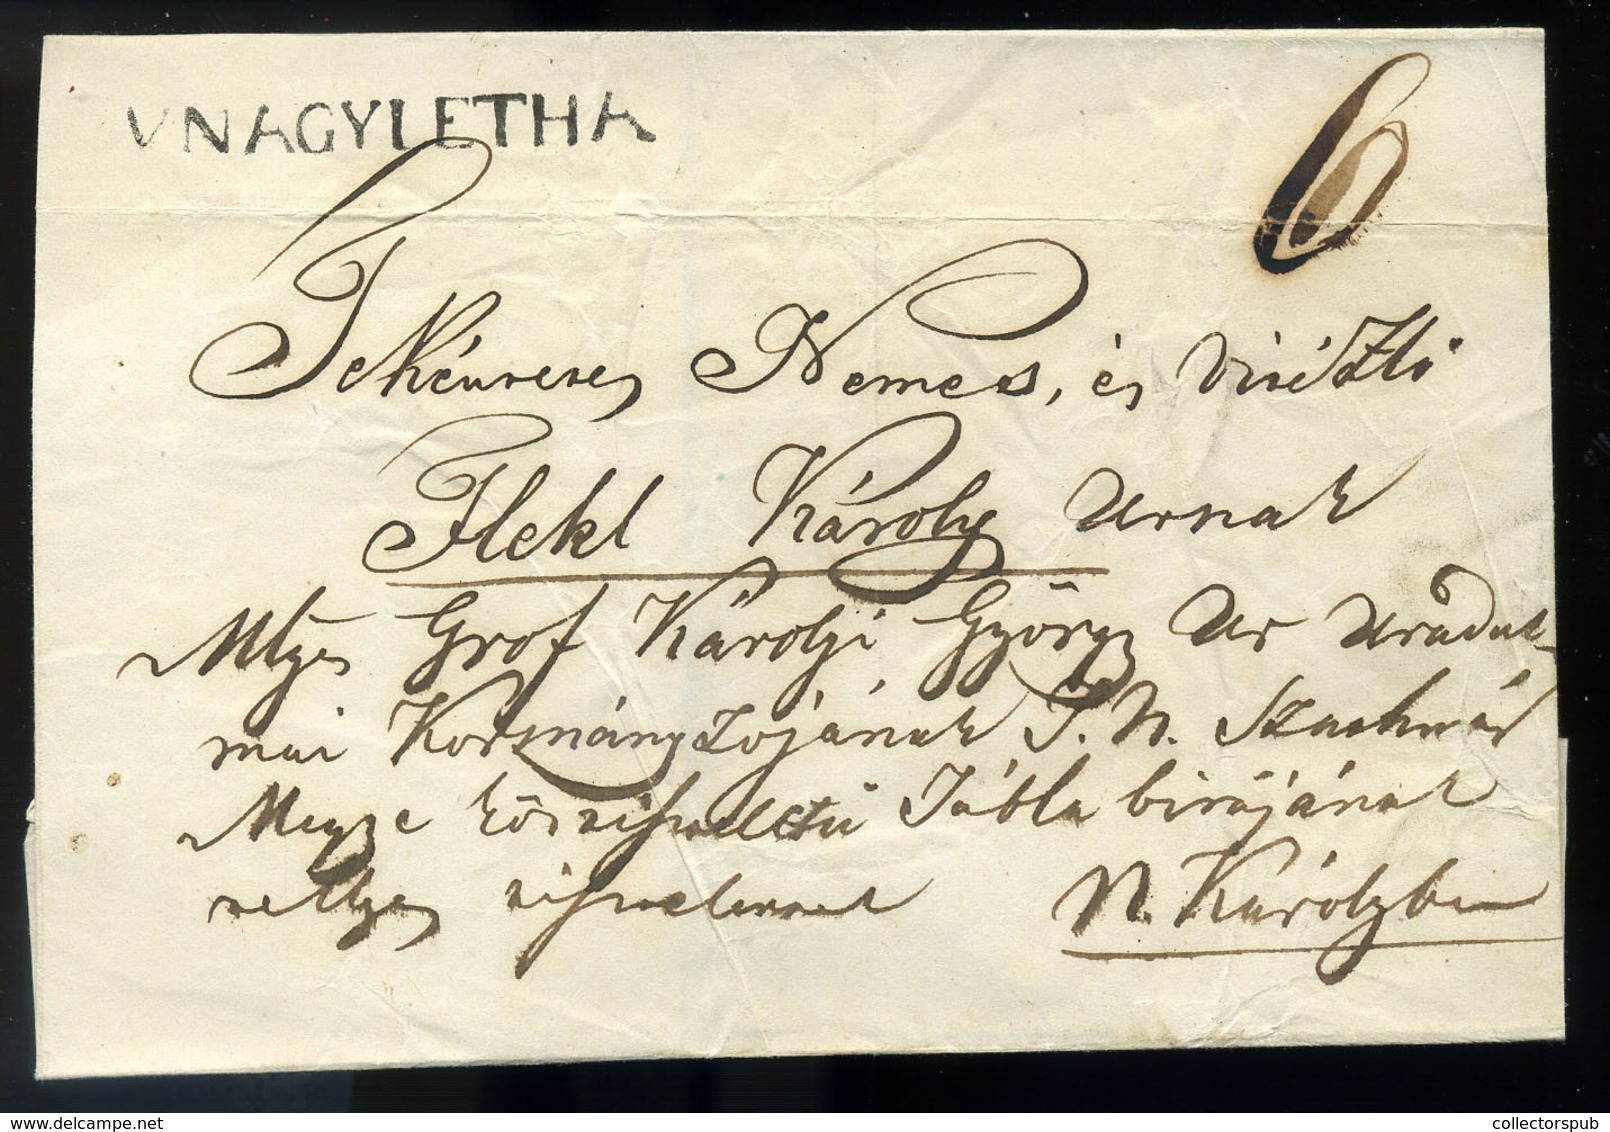 VNAGYLETHA
6
Tekéntetes Nemes, és Vitézlő
Flekl Károly Urnak
Mlgs Gróf Károlyi György Ur Uradal-
mai Kormányzójának T. N. Szathmár
Megye köztiszteletű Tábla birájának
teljes tisztelettel N. Károlyba
www.delcampe.net
collectorspub